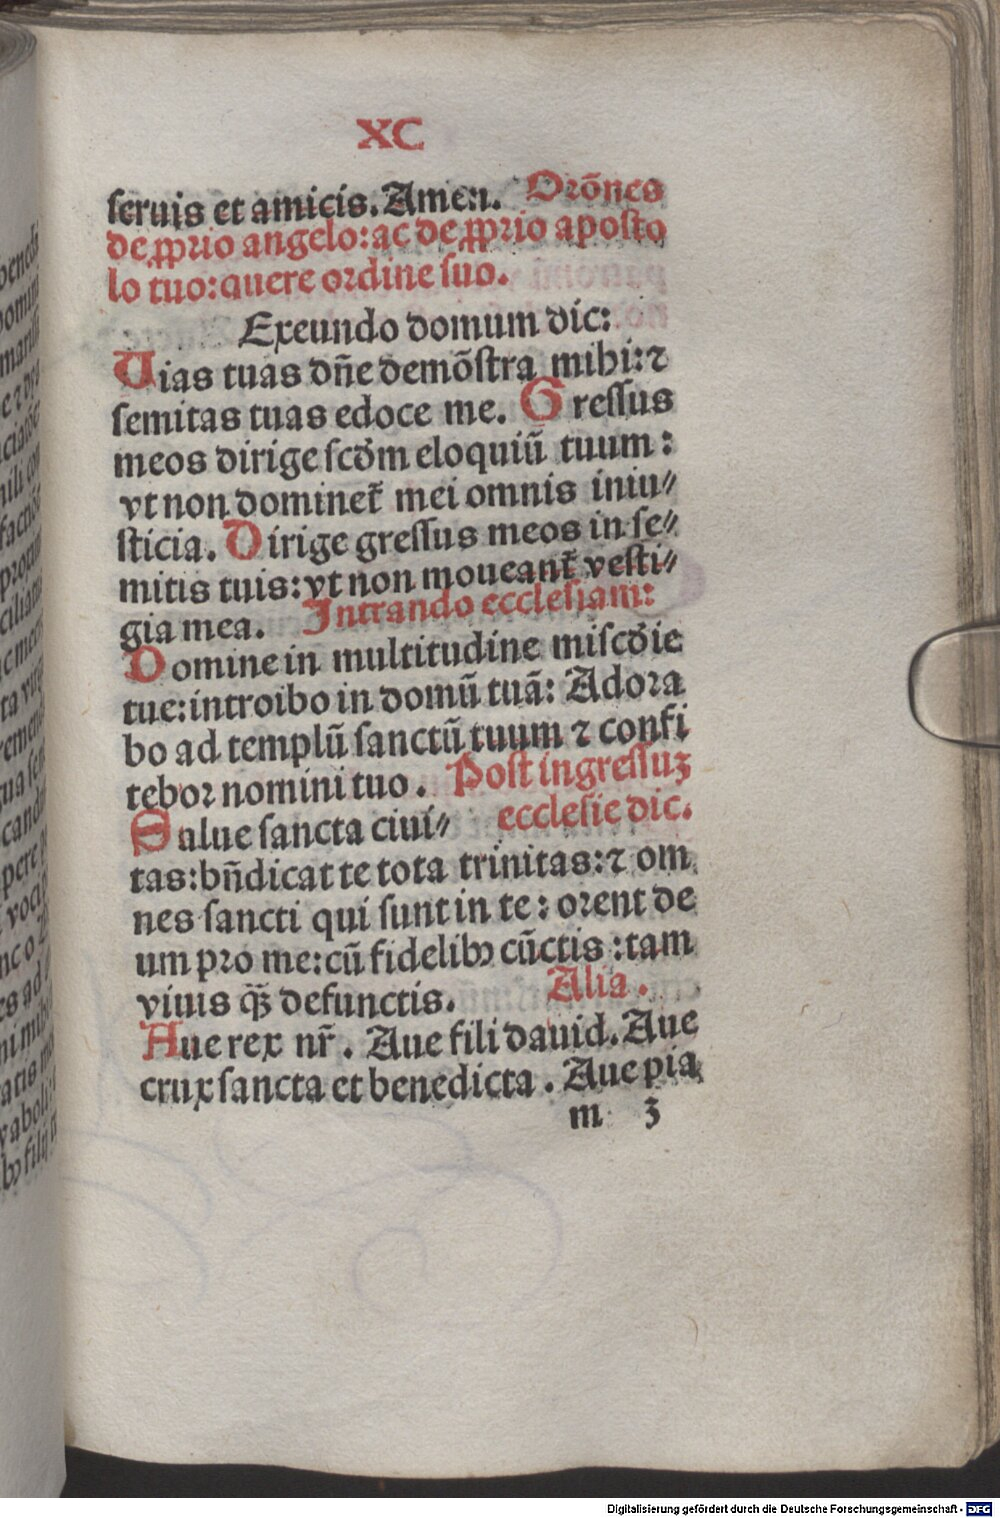 XC
seruis et amicis. Amen. Orōnes
de ꝓprio angelo: ac de ꝓprio aposto
lo tuo: quere ordine suo.
Exeundo domum dic:
Uias tuas dn̄e demōstra mihi: ⁊
semitas tuas edoce me. Gressus
meos dirige scd̄m eloquiū tuum:
vt non dominet̄ mei omnis iniu⸗
sticia. Dirige gressus meos in se⸗
mitis tuis: vt non moueant̄ vesti⸗
gia mea. Intrando ecclesiam:
Domine in multitudine miscd̄ie
tue: introibo in domū tuā: Adora
bo ad templū sanctū tuum ⁊ confi
tebor nomini tuo. Post ingressuʒ
Salue sancta ciui⸗ ecclesie dic.
tas: bn̄dicat te tota trinitas: ⁊ om
nes sancti qui sunt in te: orent de
um pro me: cū fidelibꝰ cūctis: tam
viuis qʒ̄ defunctis. Alia.
Aue rex nr̄. Aue fili dauid. Aue
crux sancta et benedicta. Aue pia
m 3
Digitalisierung gefördert durch die Deutsche Forschungsgemeinschaft - DFG